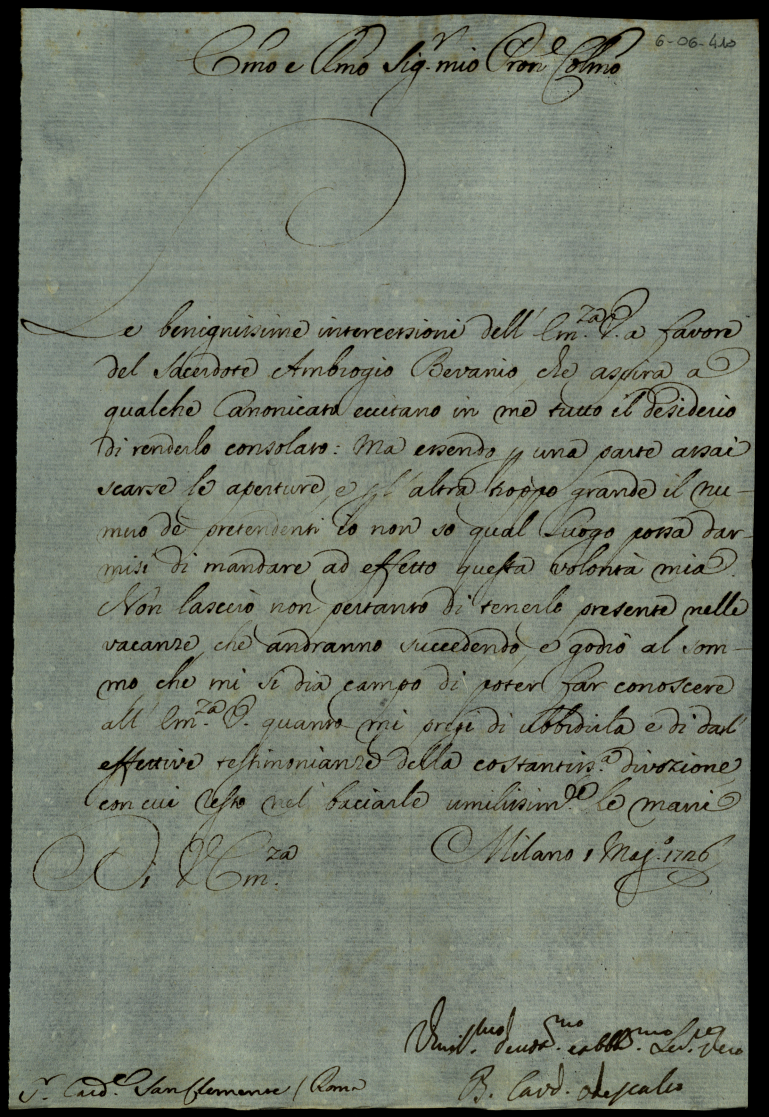 6-06-410
Emo e Rmo Sig.r mio Pron.e Colmo
Le benignissime intercessioni dell' Em.za V.a a favore
del Sacerdote Ambrogio Bevanio, che aspira a
qualche Canonicato eccitano in me tutto il desiderio
di renderlo consolato: Ma essendo p una parte assai
scarse le aperture, e p l' altra troppo grande il nu-
mero de pretendenti io non so qual luogo possa dar-
misi di mandare ad effetto questa volontà mia.
Non lascerò non pertanto di tenerlo presente nelle
vacanze, che andranno succedendo, e godrò al som-
mo che mi si dia campo di poter far conoscere
all' Em.za V. quanto mi pregi di ubbidirla e di darl'
effettive testimonianze della costantiss.a divozione
con cui resto nel baciarle umilissim.te le mani
Di V Em.za
Milano 1 Mag.o 1726
Umil.mo devot.mo ed obb.mo Ser.re vero
B. Card. Odescalco
S.r Card.e San Clemente / Roma